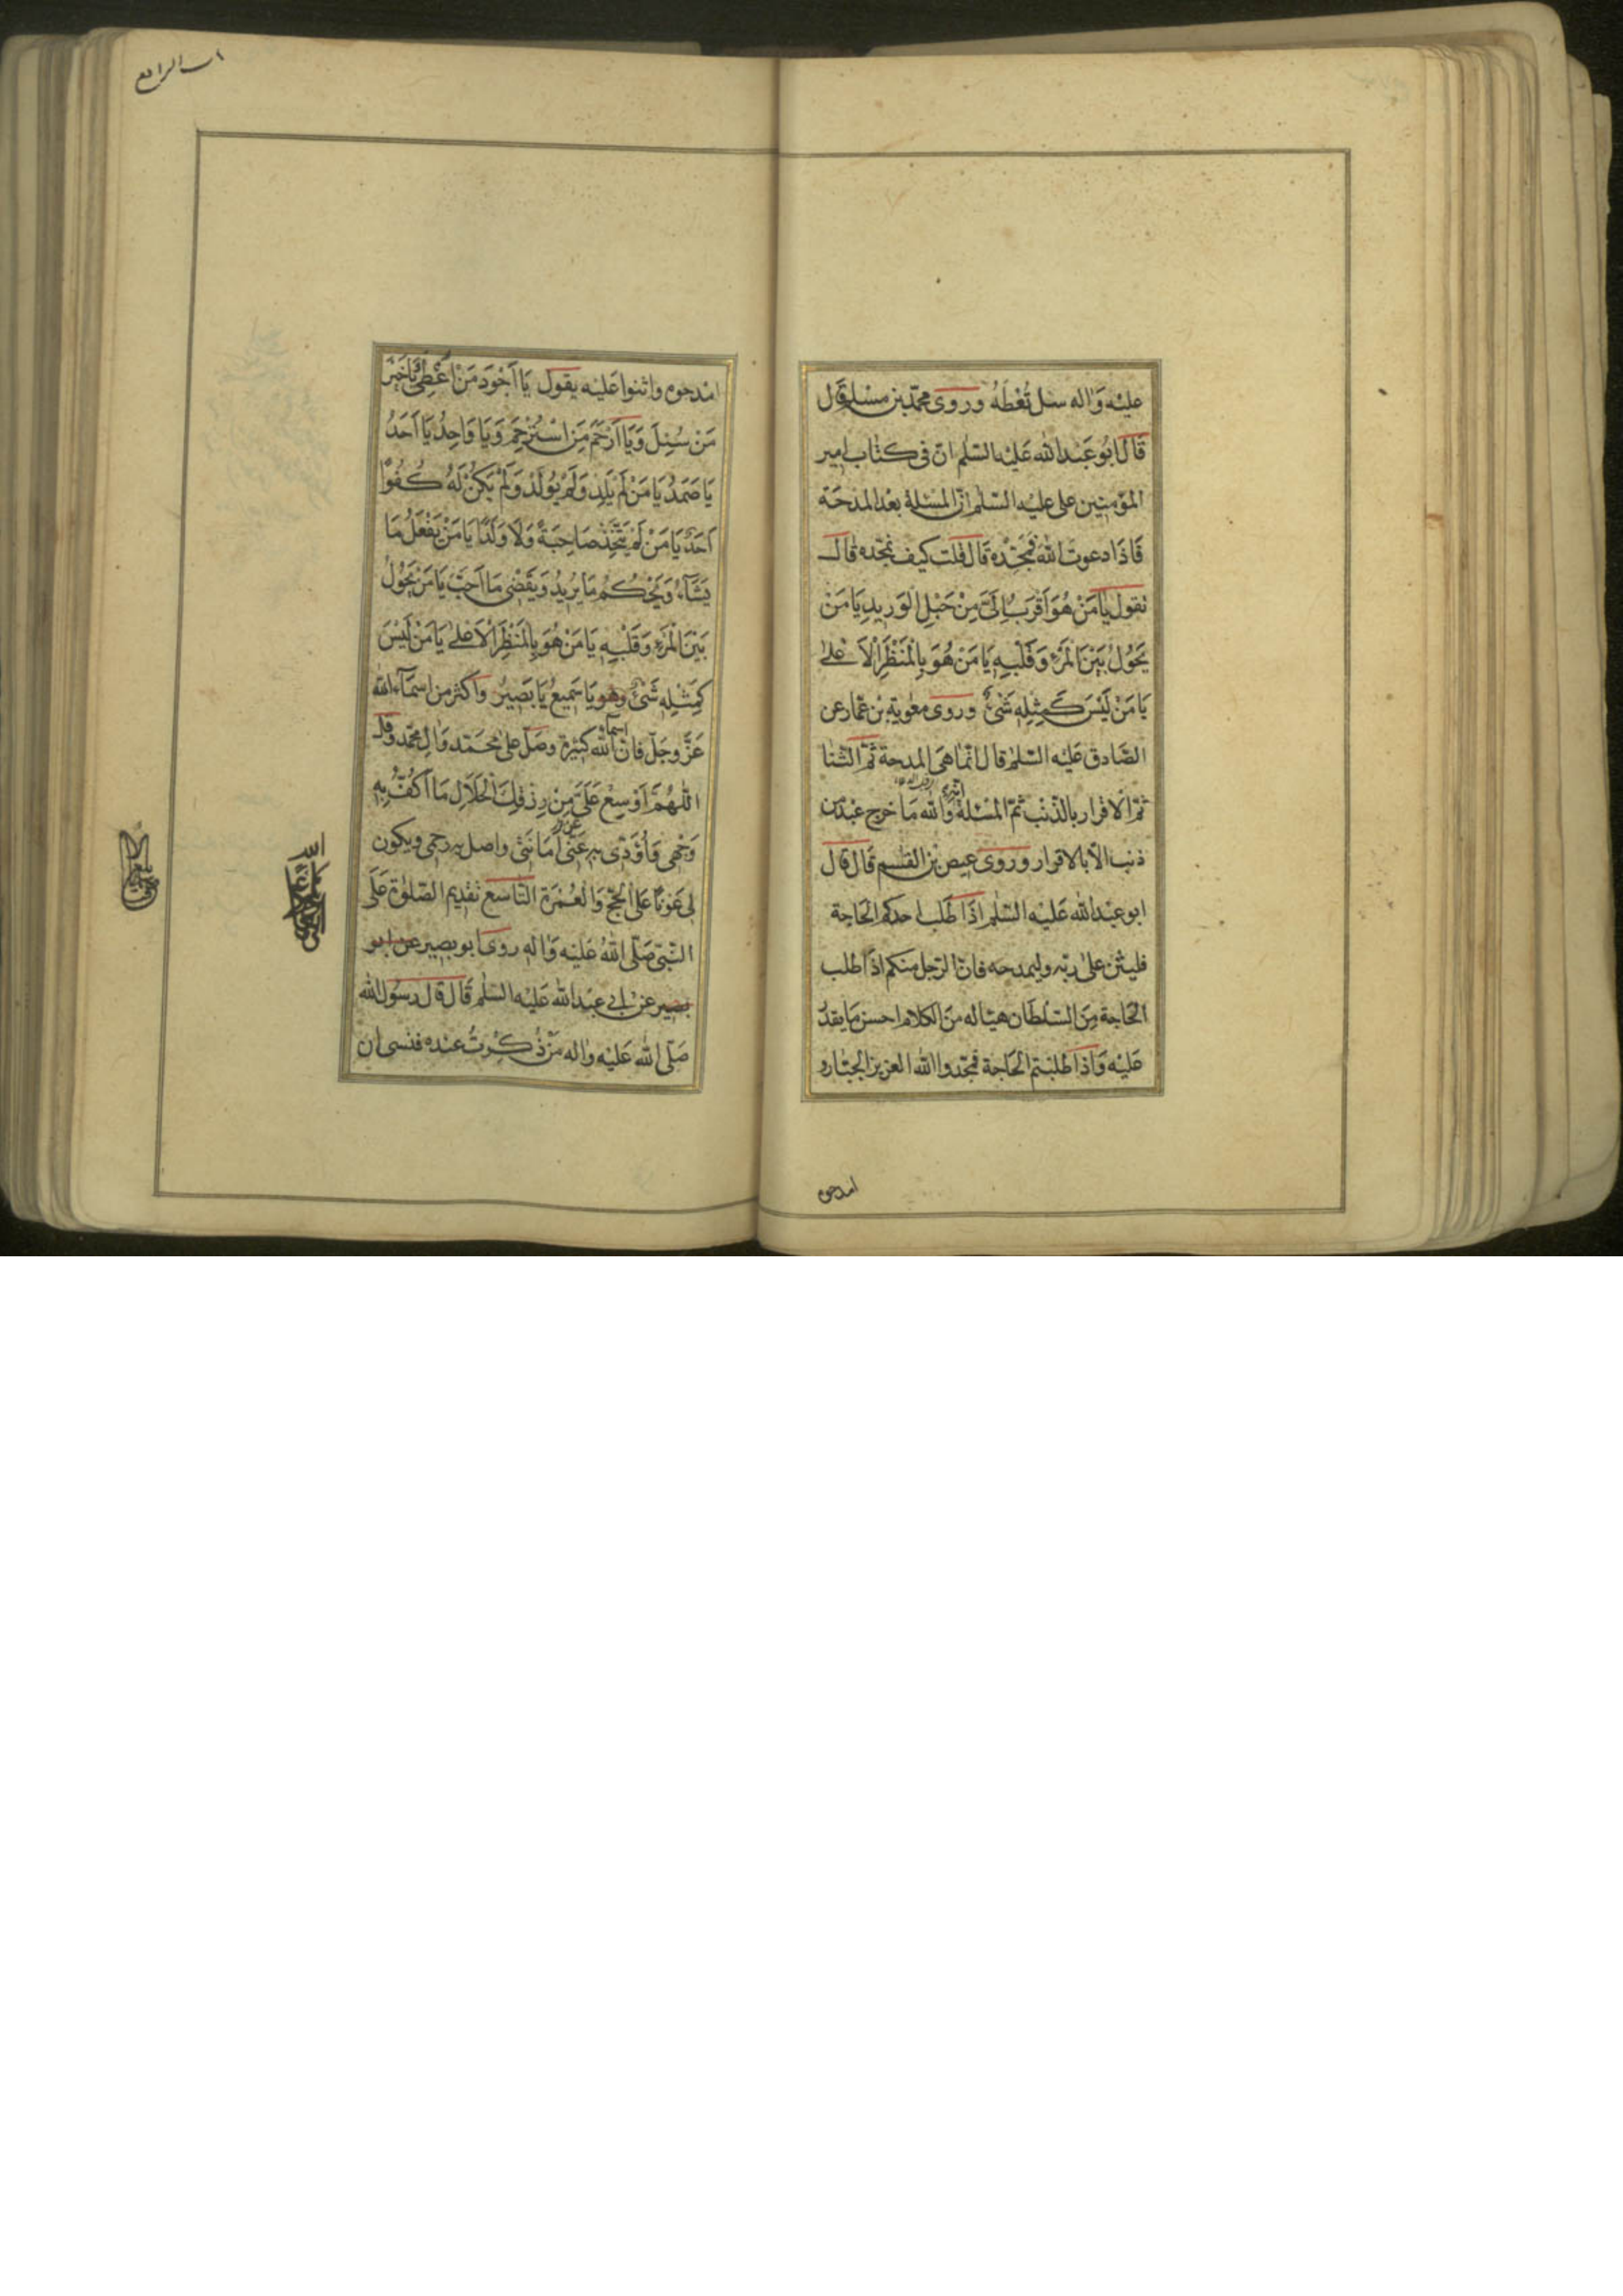 عليه واله سل تُعْطَهُ وروى محمّد بن مسلم قال
قال ابُو عَبدالله عَليه السّلم انّ فى كتاب امير
المؤمنين على عليه السّلم انّ المسئلة بعد المدحَة
فَاذَا دعوت الله فمجّده قَال قلت كيف نمجّده قال
تقول يَا مَنْ هُوَ اَقْرَبُ اِلَىَّ مِنْ حَبْلِ الوَرِيدِ يَا مَنْ
يَحُولُ بَيْنَ الْمَرْءِ وَقَلْبِهِ يَا مَنْ هُوَ بِالْمَنْظَرِ الْاَعْلىٰ
يَا مَنْ لَيْسَ كَمِثْلِهِ شَىْءٌ وروى معٰوية بن عمّار عن
الصَّادق عَليه السّلم قال انّما هى المدحة ثمّ الثنا
ثمّ الاقرار بالذّنب ثمّ المسْئلة والله مَا خرج عبد من
ذنب الّا بالاقرار وروى عيص بن القسم قَال قال
ابو عبد الله عَليه السّلم اذَا طَلب احدكم الحَاجة
فليثن علىٰ ربّه وليمدحه فانّ الرّجل منكم اذا طلب
الحَاجة مِنَ السّلطان هيّا له منَ الكلام احسن مَا يقدر
عَليه وَاذا طلبتم الحَاجة فمجّدوا الله العزيز الجبّار و
امدحوه
الرابع
امْدحوه واثنوا عَليْه يقول يَا اَجْوَدَ مَنْ اَعْطىٰ يَا خَيْرَ
مَنْ سُئِلَ وَيَا اَرْحَمَ مَنِ اسْتُرْحِمَ وَيَا وَاحِدُ يَا اَحَدُ
يَا صَمَدُ يَا مَنْ لَمْ يَلِدْ وَلَمْ يُولَدْ وَلَمْ يَكُنْ لَهُ كُفُوًا
اَحَدٌ يَا مَنْ لَمْ يَتَّخِذْ صَاحِبَةً وَلَا وَلَدًا يَا مَنْ يَفْعَلُ مَا
يَشَآءُ وَيَحْكُمُ مَا يُرِيدُ وَيَقْضِى مَا اَحَبَّ يَا مَنْ يَحُولُ
بَيْنَ الْمَرْءِ وَقَلْبِهِ يَا مَنْ هُوَ بِالْمَنْظَرِ الْاَعْلىٰ يَا مَنْ لَيْسَ
كَمِثْلِهِ شَىْءٌ وهو يَا سَمِيعُ يَا بَصِيرُ واكثر من اسمآء الله
عَزَّ وجَلّ فانّ اسمآء الله كثيرة وصَلّ على محَمّد وَال محمّد وقل
اللّٰهُمَّ اَوْسِعْ عَلَىَّ مِنْ رِزْقِكَ الْحَلَالِ مَا اَكُفُّ بِهِ
وَجْهِى وَاُؤَدِّى بِهِ عَنّى اَمَانَتِى واصل به رحمى ويكون
لِى عَوْنًا عَلَى الحَجِّ وَالْعُمْرَة التّاسع تقديم الصّلوٰة عَلَى
النّبىّ صَلّى اللهُ عَليْه وَاله روى ابو بصير عن ابو
بصير عن ابى عبد الله عَليه السّلم قَال قال رسُول الله
صَلّى الله عَليْه واله مَنْ ذُكِرْتُ عنده فنسى ان